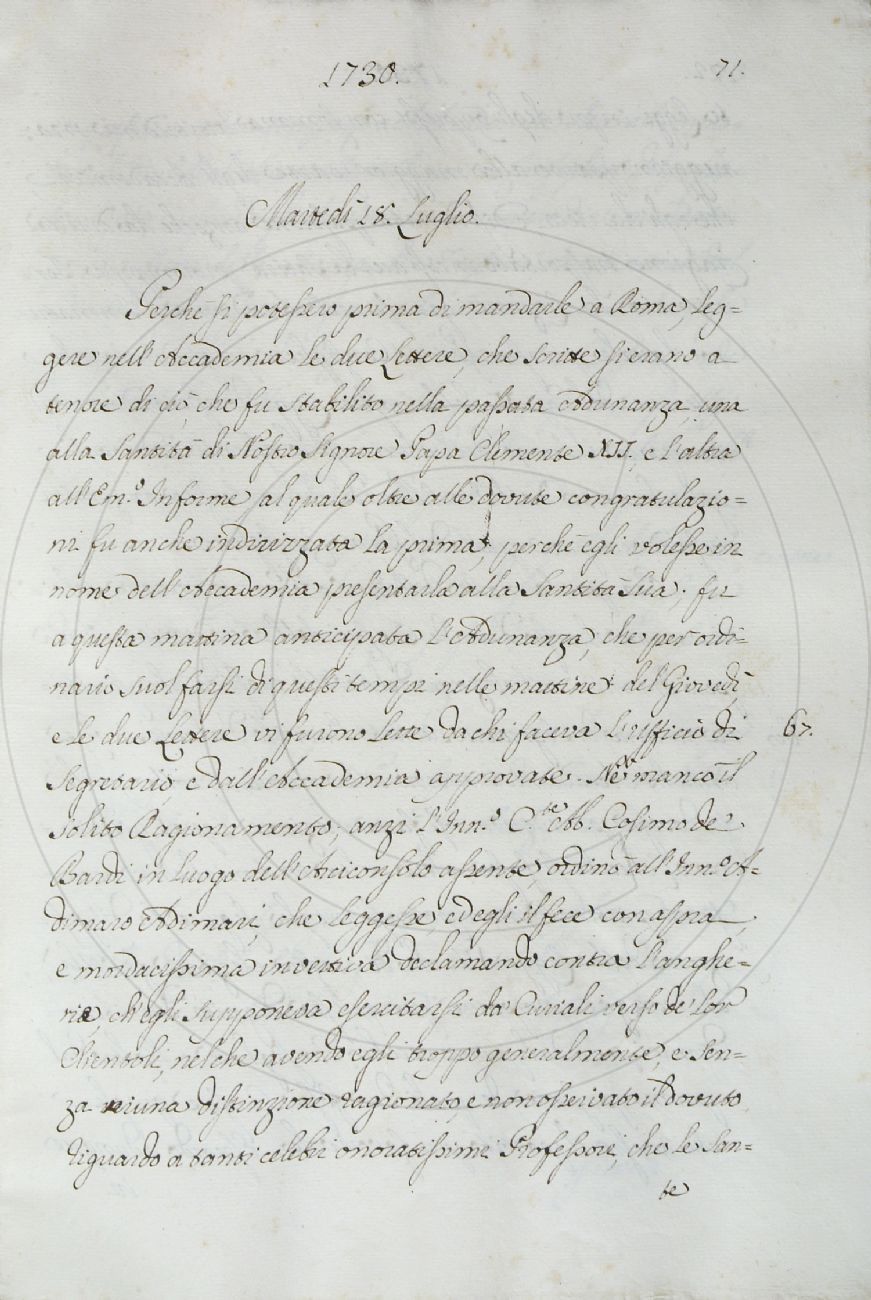 1730.
71.
Martedì 18. Luglio.
Perchè si potessero prima di mandarle a Roma, leg=
gere nell'Accademia le due Lettere, che scritte si erano a
tenore di ciò, che fu stabilito nella passata Adunanza, una
alla Santità di Nostro Signore Papa Clemente XII., e l'altra
all'Em.º Informe, al quale oltre alle dovute congratulazio=
ni fu anche indirizzata la prima, perchè egli volesse in
nome dell'Accademia presentarla alla Santità Sua; fu
a questa mattina anticipata l'Adunanza, che per ordi=
nario suol farsi di questi tempi nelle mattine del Giovedì,
e le due Lettere vi furono lette da chi faceva l'uffizio di
67.
Segretario, e dall'Accademia approvate. Nè mancò il
solito Ragionamento; anzi l'Inn.º C.te Ab. Cosimo de'
Bardi in luogo dell'Arciconsolo assente, ordinò all'Inn.º A=
dimaro Adimari, che leggesse, ed egli il fece con aspra,
e mordacissima invettiva declamando contra l'anghe=
rie, ch'egli supponeva esercitarsi da' Curiali verso de' Lor
Clientoli, nel che avendo egli troppo generalmente, e sen=
za niuna distinzione ragionato, e non osservato il dovuto
riguardo a tanti celebri onoratissimi Professori, che le San=
te